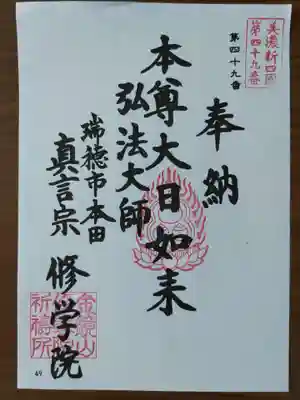 美濃新四国
第四十九番
第四十九番
奉納
本尊大日如来
弘法大師
瑞穂市本田
真言宗
修学院
金鏡山
祈祷所
49